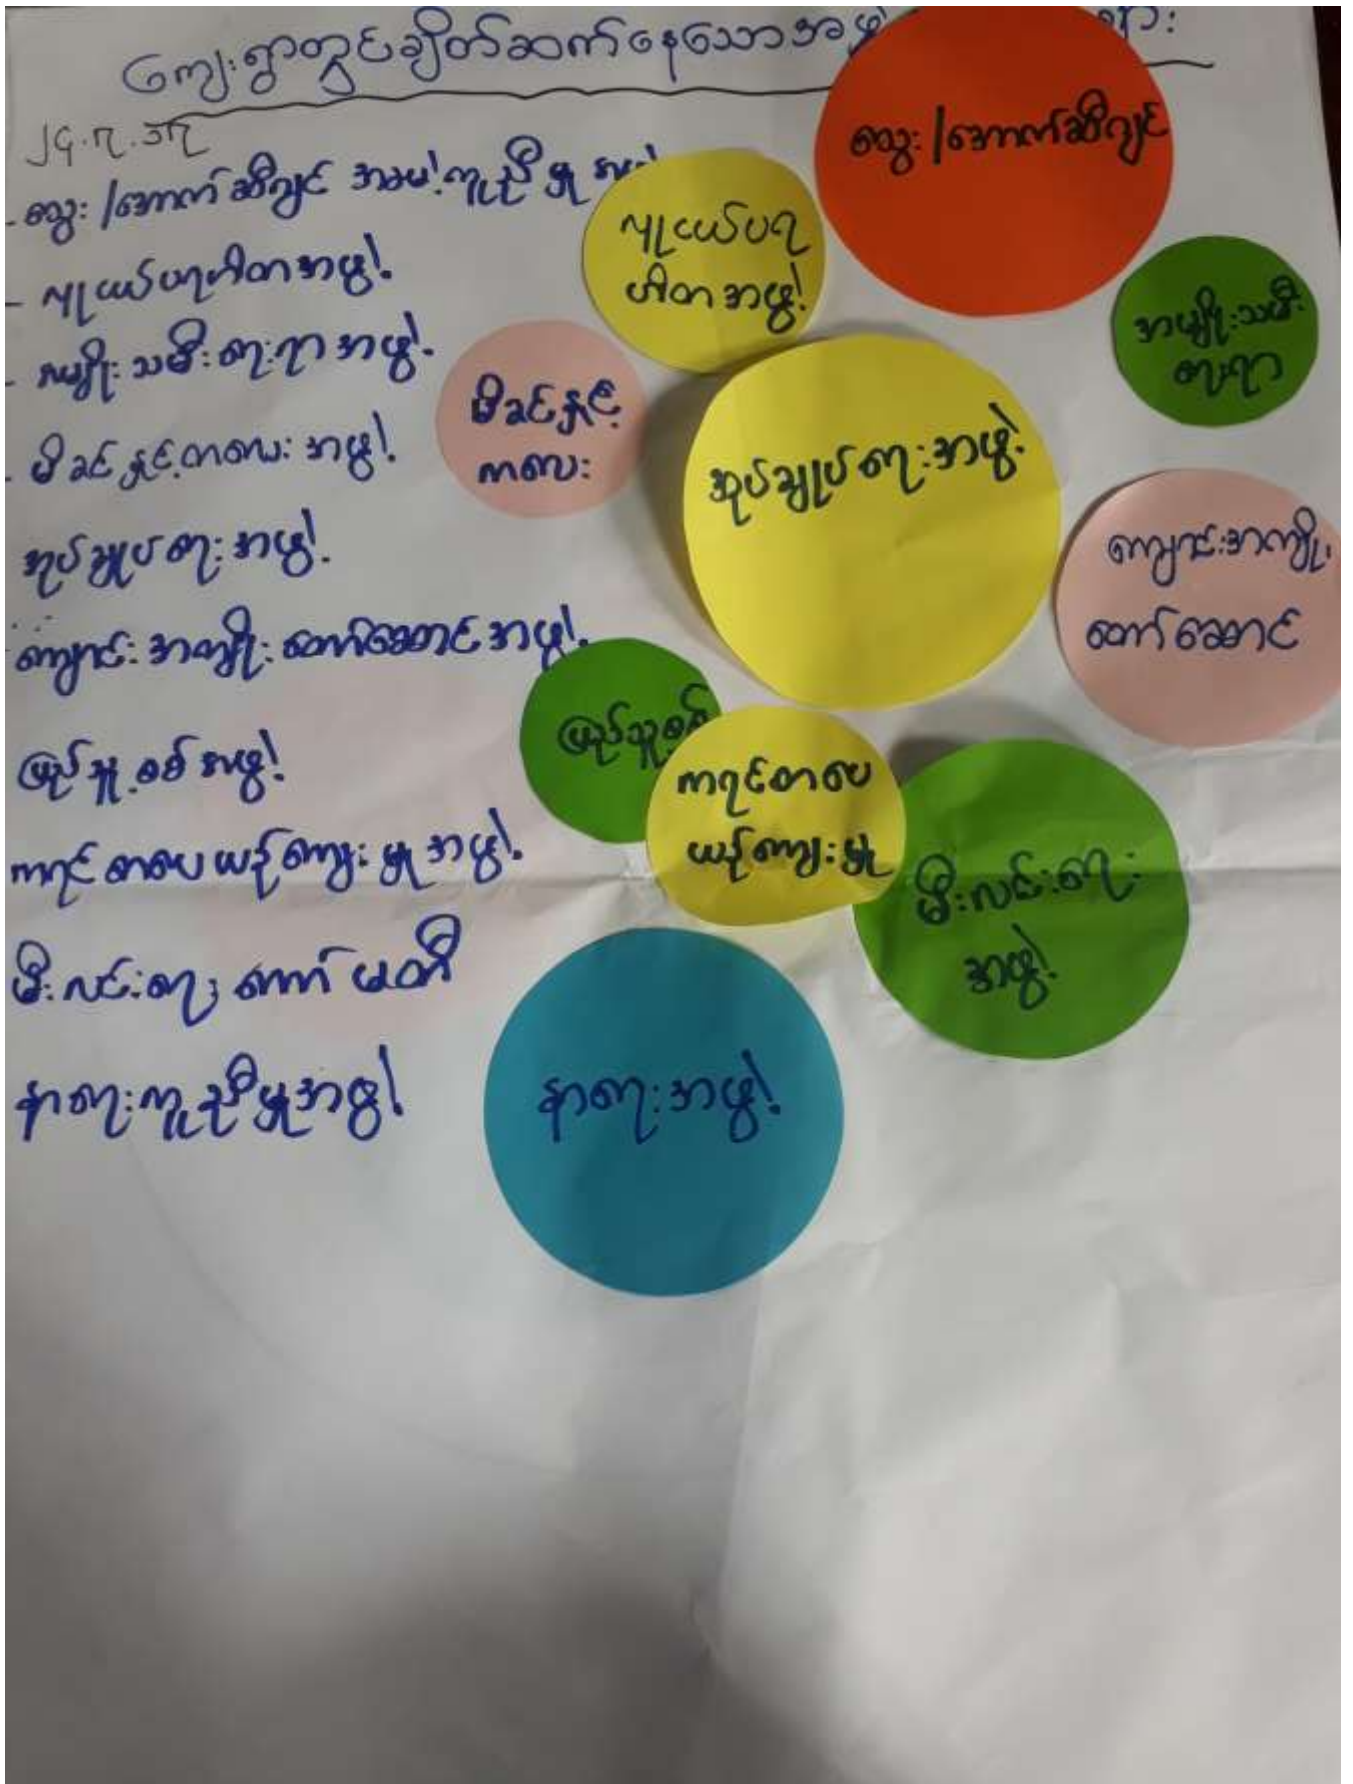 ကျေးရွာတွင်ချိတ်ဆက်နေသော
သွေး/အောက်ဆီဂျင် အခမဲ့ကူညီမှု
- လူငယ်ပရဟိတအဖွဲ့.
- အမျိုးသမီးရေးရာအဖွဲ့.
- မိခင်နှင့်ကလေး အဖွဲ့.
အုပ်ချုပ်ရေးအဖွဲ့.
ကျောင်းအကျိုးတော်ဆောင်အဖွဲ့.
ပြည်သူ့စစ်အဖွဲ့.
ကရင်စာပေယဉ်ကျေးမှုအဖွဲ့.
မီးလင်းရေး ကော်မတီ
နာရေးကူညီမှုအဖွဲ့
သွေး/အောက်ဆီဂျင်
လူငယ်ပရ
ဟိတအဖွဲ့
အမျိုးသမီး
ရေးရာ
မိခင်နှင့်
ကလေး
အုပ်ချုပ်ရေးအဖွဲ့
ကျောင်းအကျိုး
တော်ဆောင်
ပြည်သူ့စစ်
ကရင်စာပေ
ယဉ်ကျေးမှု
မီးလင်းရေး
အဖွဲ့
နာရေးအဖွဲ့